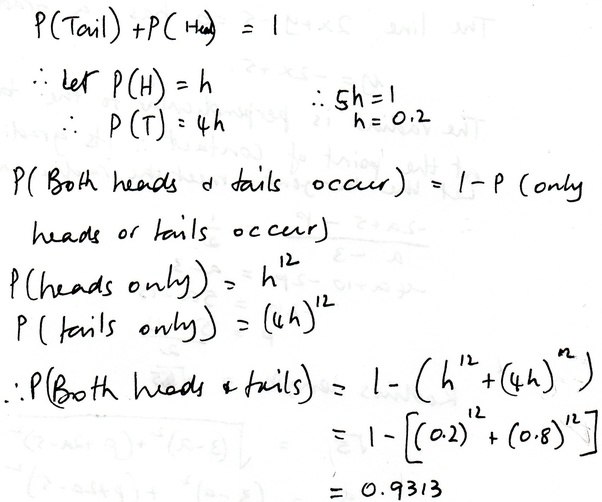 P(Tail) + P(Head) = 1
∴ Let P(H) = h ∴ 5h = 1
∴ P(T) = 4h h = 0.2
P(Both heads & tails occur) = 1 - P(only
heads or tails occur)
P(heads only) = h¹²
P(tails only) = (4h)¹²
∴ P(Both heads & tails) = 1 - (h¹² + (4h)¹²)
= 1 - [(0.2)¹² + (0.8)¹²]
= 0.9313